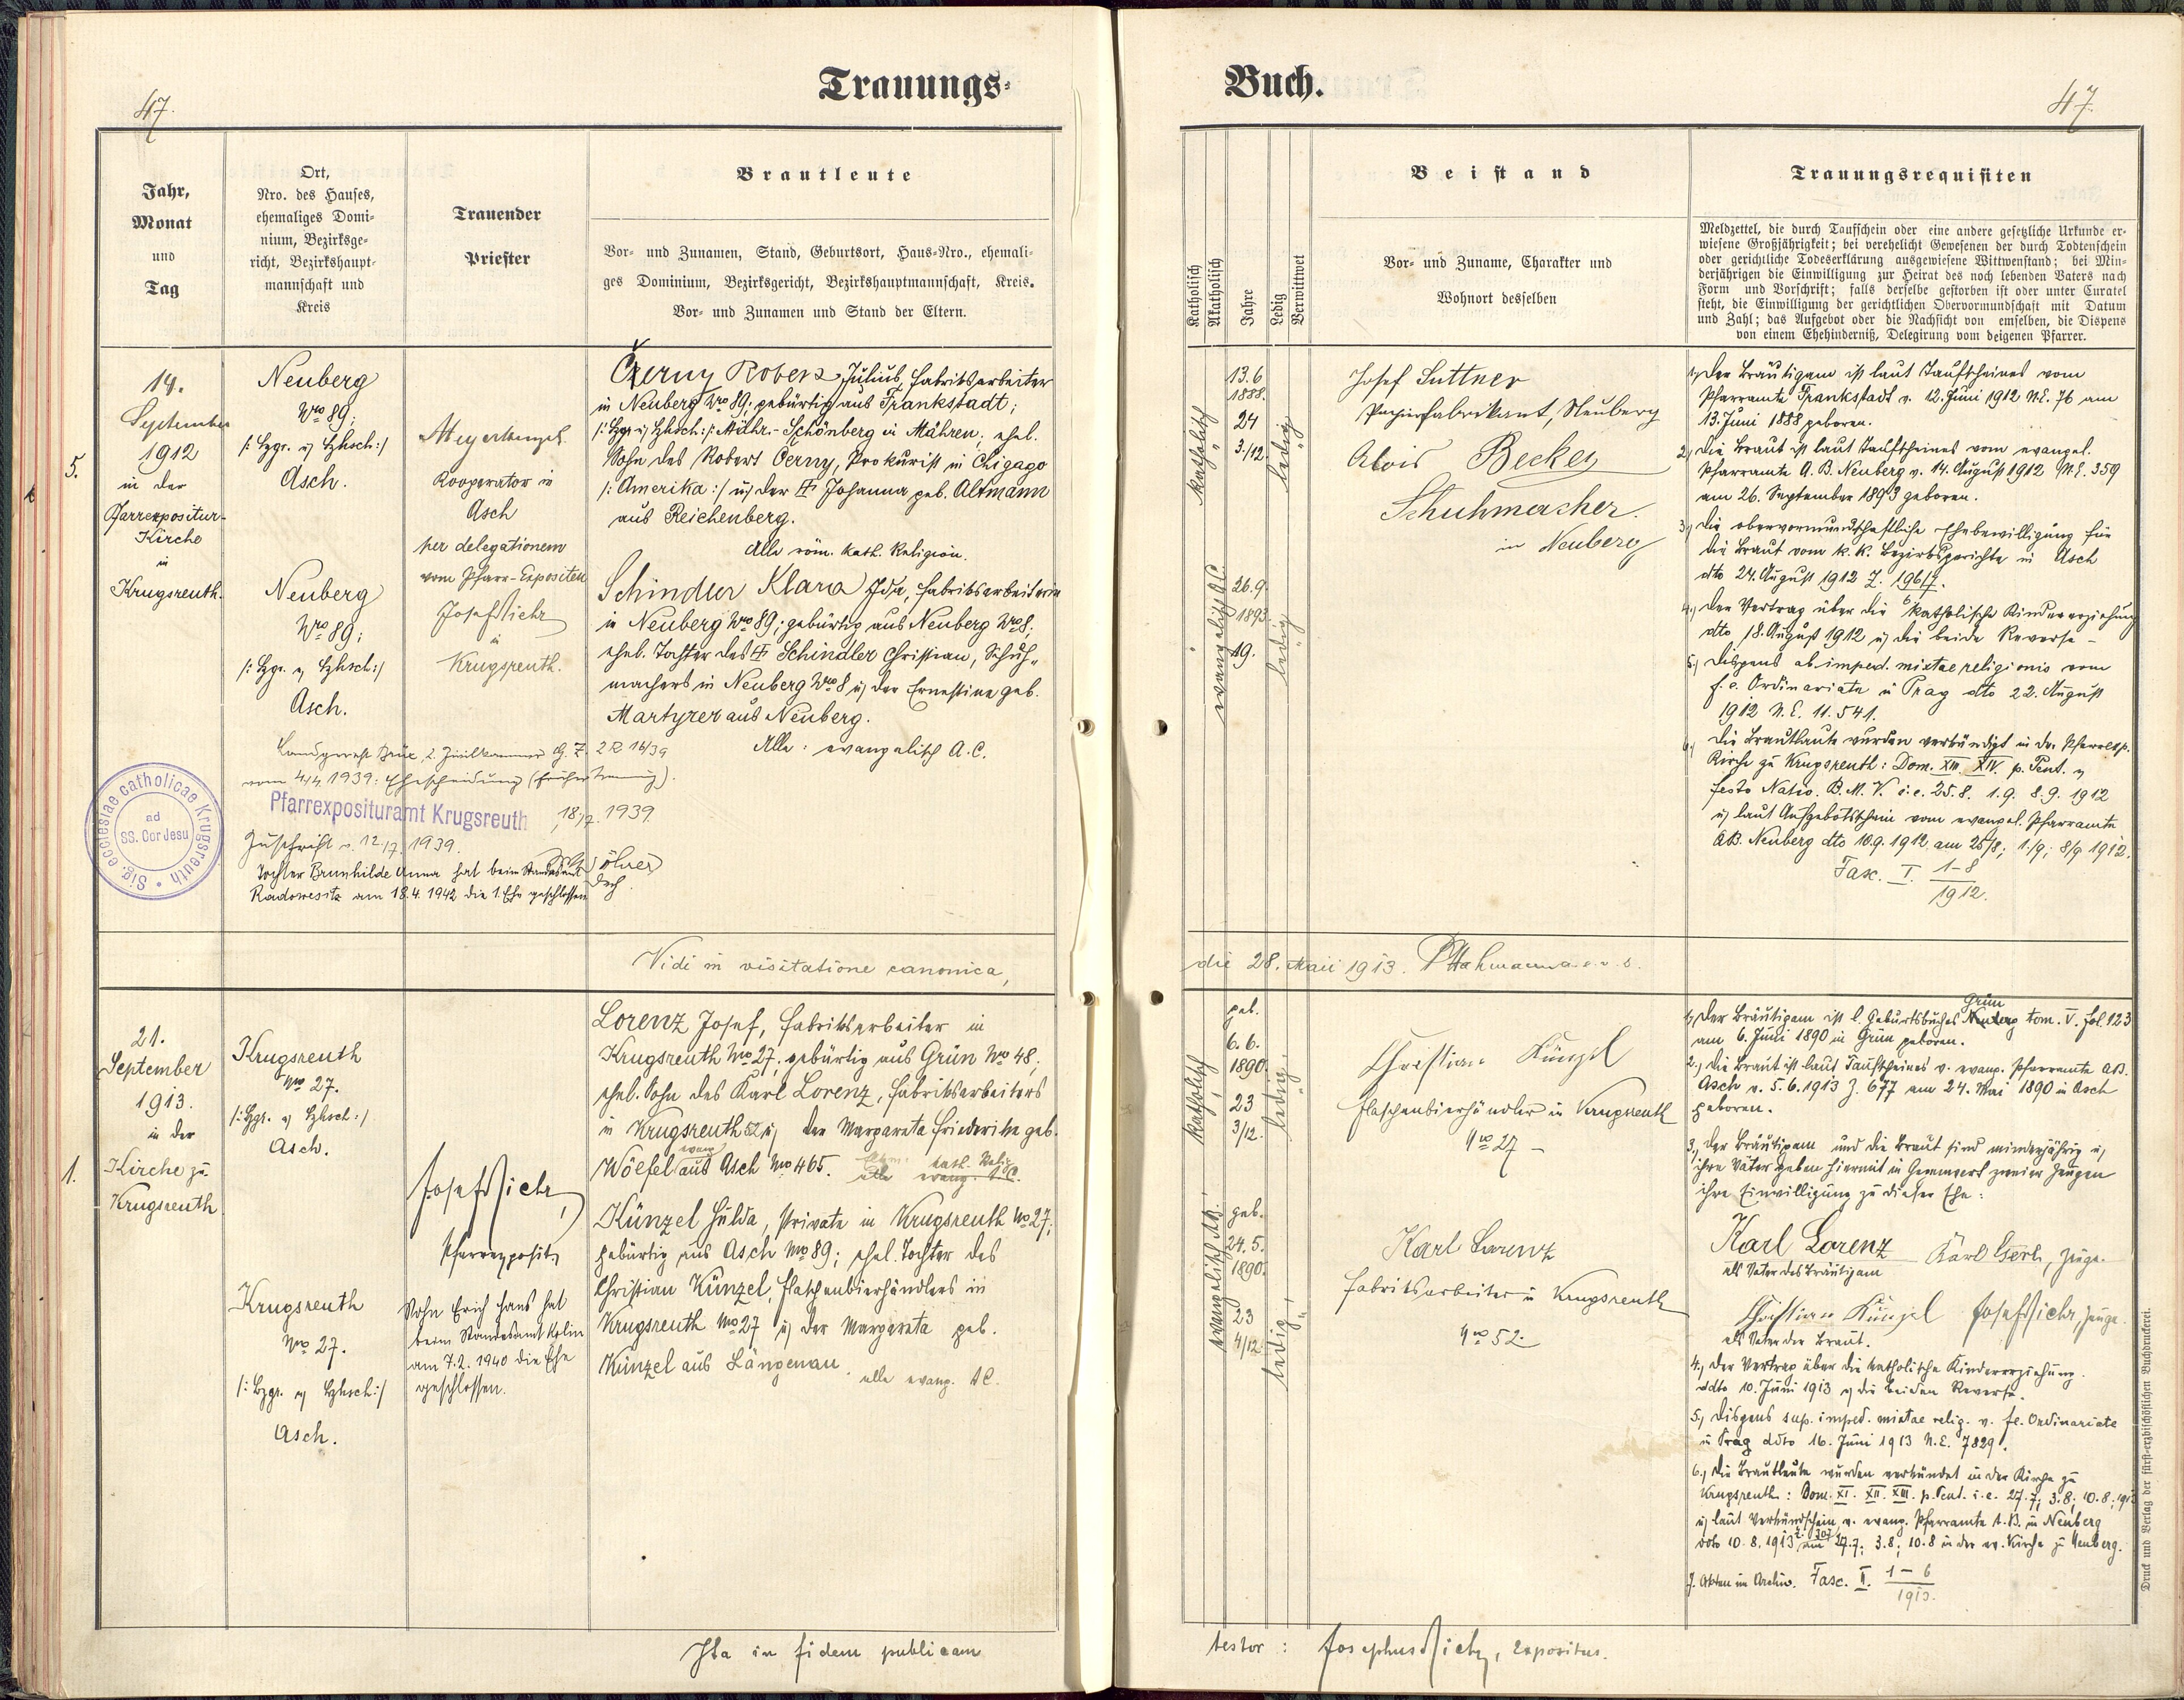 47.
Trauungs-
Jahr,
Monat
und
Tag
Ort,
Nro. des Hauses,
ehemaliges Domi-
nium, Bezirksge-
richt, Bezirkshaupt-
mannschaft und
Kreis
Trauender
Priester
Brautleute
Vor- und Zunamen, Stand, Geburtsort, Haus-Nro., ehemali-
ges Dominium, Bezirksgericht, Bezirkshauptmannschaft, Kreis.
Vor- und Zunamen und Stand der Eltern.
5.
14.
September
1912
in der
Pfarrexpositur-
Kirche
in
Krugsreuth.
Neuberg
Nro 89;
/: Bzgr. u Bzhsch :/
Asch.
Neuberg
Nro 89;
/: Bzgr. u Bzhsch :/
Asch.
Kooperator in
Asch
per delegationem
vom Pfarr-Expositen
Josef Sichr
in
Krugsreuth.
Czerny Robert Julius, Fabriksarbeiter
in Neuberg Nro 89; gebürtig aus Frankstadt;
/: Bzgr u Bzhsch :/: Mähr.-Schönberg in Mähren; ehel.
Sohn des Robert Černy, Prokurist in Chigago
/: Amerika :/ u der Johanna geb. Altmann
aus Reichenberg.
Alle röm. kath. Religion.
Schindler Klara Ida, Fabriksarbeiterin
in Neuberg Nro 89; gebürtig aus Neuberg Nro 8;
ehel. Tochter des Schindler Christian, Schuh-
machers in Neuberg Nro 8 u der Ernestine geb.
Martyrer aus Neuberg.
Alle: evangelisch A. C.
Landgericht Brüx, 2. Zivilkammer G. Z. 2 R 16/39
vom 4/4 1939: Ehescheidung (früher Trennung).
Pfarrexposituramt Krugsreuth, 18/7. 1939
Zuschrift v. 12/7. 1939.
Tochter Brunhilde Anna hat beim Standesamt
Radowesitz am 18.4.1942 die 1. Ehe geschlossen
Sig. ecclesiae catholicae Krugsreuth
ad
SS. Cor Jesu
Vidi in visitatione canonica,
1.
21.
September
1913.
in der
Kirche zu
Krugsreuth
Krugsreuth
Nro 27.
/: Bzgr. u Bzhsch :/
Asch.
Krugsreuth
Nro 27.
/: Bzgr. u Bzhsch :/
Asch.
Josef Sichr,
Pfarrexposit.
Sohn Erich Hans hat
beim Standesamt Kolin
am 7.2.1940 die Ehe
geschlossen.
Lorenz Josef, Fabriksarbeiter in
Krugsreuth Nro 27; gebürtig aus Grün Nro 48;
ehel. Sohn des Karl Lorenz, Fabriksarbeiters
in Krugsreuth 52 u der Margareta Friederike geb.
Wölfel aus Asch Nro 465. kath. Relig.
alle evang. A. C.
Künzel Hulda, Private in Krugsreuth No 27;
gebürtig aus Asch Nro 89; ehel. Tochter des
Christian Künzel, Flaschenbierhändlers in
Krugsreuth Nro 27 u der Margareta geb.
Künzel aus Längenau. alle evang. A C.
Ita in fidem publicam
Buch.
47.
Katholisch
Akatholisch
Jahre
Ledig
Verwittwet
Beistand
Vor- und Zuname, Charakter und
Wohnort desselben
Trauungsrequisiten
Meldzettel, die durch Taufschein oder eine andere gesetzliche Urkunde er-
wiesene Großjährigkeit; bei verehelicht Gewesenen der durch Todtenschein
oder gerichtliche Todeserklärung ausgewiesene Wittwenstand; bei Min-
derjährigen die Einwilligung zur Heirat des noch lebenden Vaters nach
Form und Vorschrift; falls derselbe gestorben ist oder unter Curatel
steht, die Einwilligung der gerichtlichen Obervormundschaft mit Datum
und Zahl; das Aufgebot oder die Nachsicht von emselben, die Dispens
von einem Ehehinderniß, Delegirung vom deigenen Pfarrer.
katholisch
13.6
1888.
24
3/12.
ledig
evangelisch A.C.
26.9.
1893
19.
ledig
Josef Suttner
Papierfabrikant, Neuberg
Alois Becker
Schuhmacher.
in Neuberg
1., Der Bräutigam ist laut Taufscheines vom
Pfarramte Frankstadt v. 12. Juni 1912 N.E. 76 am
13. Juni 1888 geboren.
2., Die Braut ist laut Taufscheines vom evangel.
Pfarramte A. B. Neuberg v. 14. August 1912 N.E. 359
am 26. September 1893 geboren.
3., Die obervormundschaftliche Ehebewilligung für
die Braut vom k. k. Bezirksgerichte in Asch
dto 24. August 1912 Z.
4., Der Vertrag über die katholische Kindererziehung
dto 18. August 1912 u die beide Reverse –
5., Dispens ab imped. mixtae religionis vom
f. e. Ordinariate in Prag dto 22. August
1912 N. E. 11.541.
6., Die Brautleute wurden verkündigt in der Pfarrexp.
Kirche zu Krugsreuth: Dom. XIII. XIV. p. Pent. u
festo Nativ. B. M. V. i. e. 25.8. 1.9. 8.9. 1912
u laut Aufgebotschein vom evangel. Pfarramte
A.B. Neuberg dto 10.9.1912 am 25/8; 1./9; 8/9 1912.
Fasc. I. 1-8
1912.
die 28. Maii 1913.
katholisch
geb.
6.6.
1890.
23
3/12.
ledig
evangelisch A.B.
geb.
24.5.
1890.
23
4/12.
ledig
Christian Künzel
Flaschenbierhändler in Krugsreuth
Nro 27 –
Karl Lorenz
Fabriksarbeiter in Krugsreuth
Nro 52.
Grün
1., Der Bräutigam ist l. Geburtsbuches Neuberg tom. V. fol. 123
am 6. Juni 1890 in Grün geboren.
2., Die Braut ist laut Taufscheines v. evang. Pfarramte A.B.
Asch v. 5.6.1913 Z. 677 am 24. Mai 1890 in Asch
geboren.
3., Der Bräutigam und die Braut sind minderjährig u
ihre Väter geben hiermit in Gegenwart zweier Zeugen
ihre Einwilligung zu dieser Ehe:
Karl Lorenz
als Vater des Bräutigam
Karl Gerl, Zeuge.
Christian Künzel
als Vater der Braut.
Josef Sichr, Zeuge.
4., Der Vertrag über die katholische Kindererziehung.
ddto 10. Juni 1913 u die beiden Reverse.
5., Dispens sup. imped. mixtae relig. v. fe. Ordinariate
in Prag ddto 16. Juni 1913 N.E. 7829.
6., Die Brautleute wurden verkündet in der Kirche zu
Krugsreuth: Dom. XI. XII. XIII. p. Pent. i. e. 27.7; 3.8; 10.8; 1913
u laut Verkündschein v. evang. Pfarramte A. B. in Neuberg
ddto 10.8.1913 am 27.7; 3.8; 10.8 in der ev. Kirche zu Neuberg.
7. Akten im Archiv. Fasc. II. 1-6
1913.
testor: Josephus Sichr, Expositus.
Druck und Verlag der fürst-erzbischöflichen Buchdruckerei.